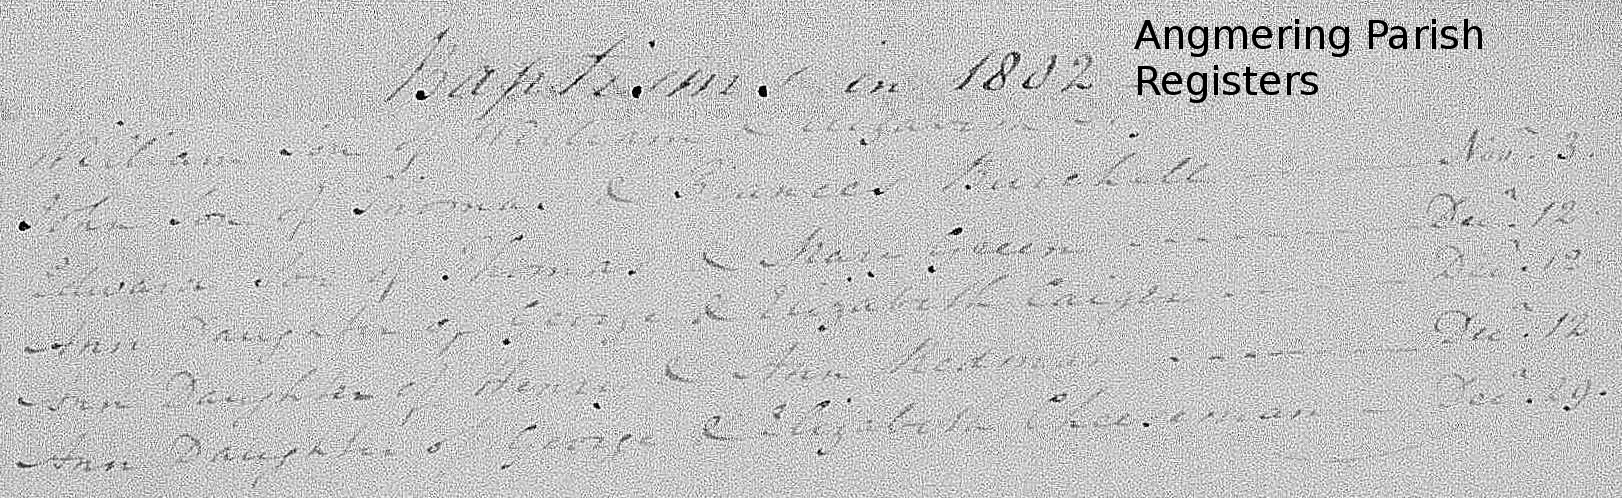 Angmering Parish
Registers
Baptisms in 1802
William Son of William & - Novr. 3.
John Son of Thomas & Frances Burchell Decr. 12
Edward Son of Thomas & Mary Green Decr. 12
Ann Daughter of George & Elizabeth Decr. 12
Ann Daughter of Henry & Ann Redman Decr. 29.
Ann Daughter of George & Elizabeth Cheesman